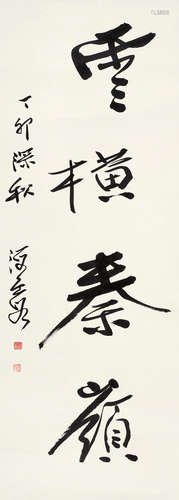 雲橫秦嶺
丁卯深秋